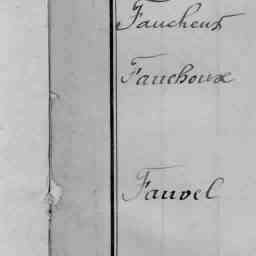 Faucheux
Fauchoux
Fauvel